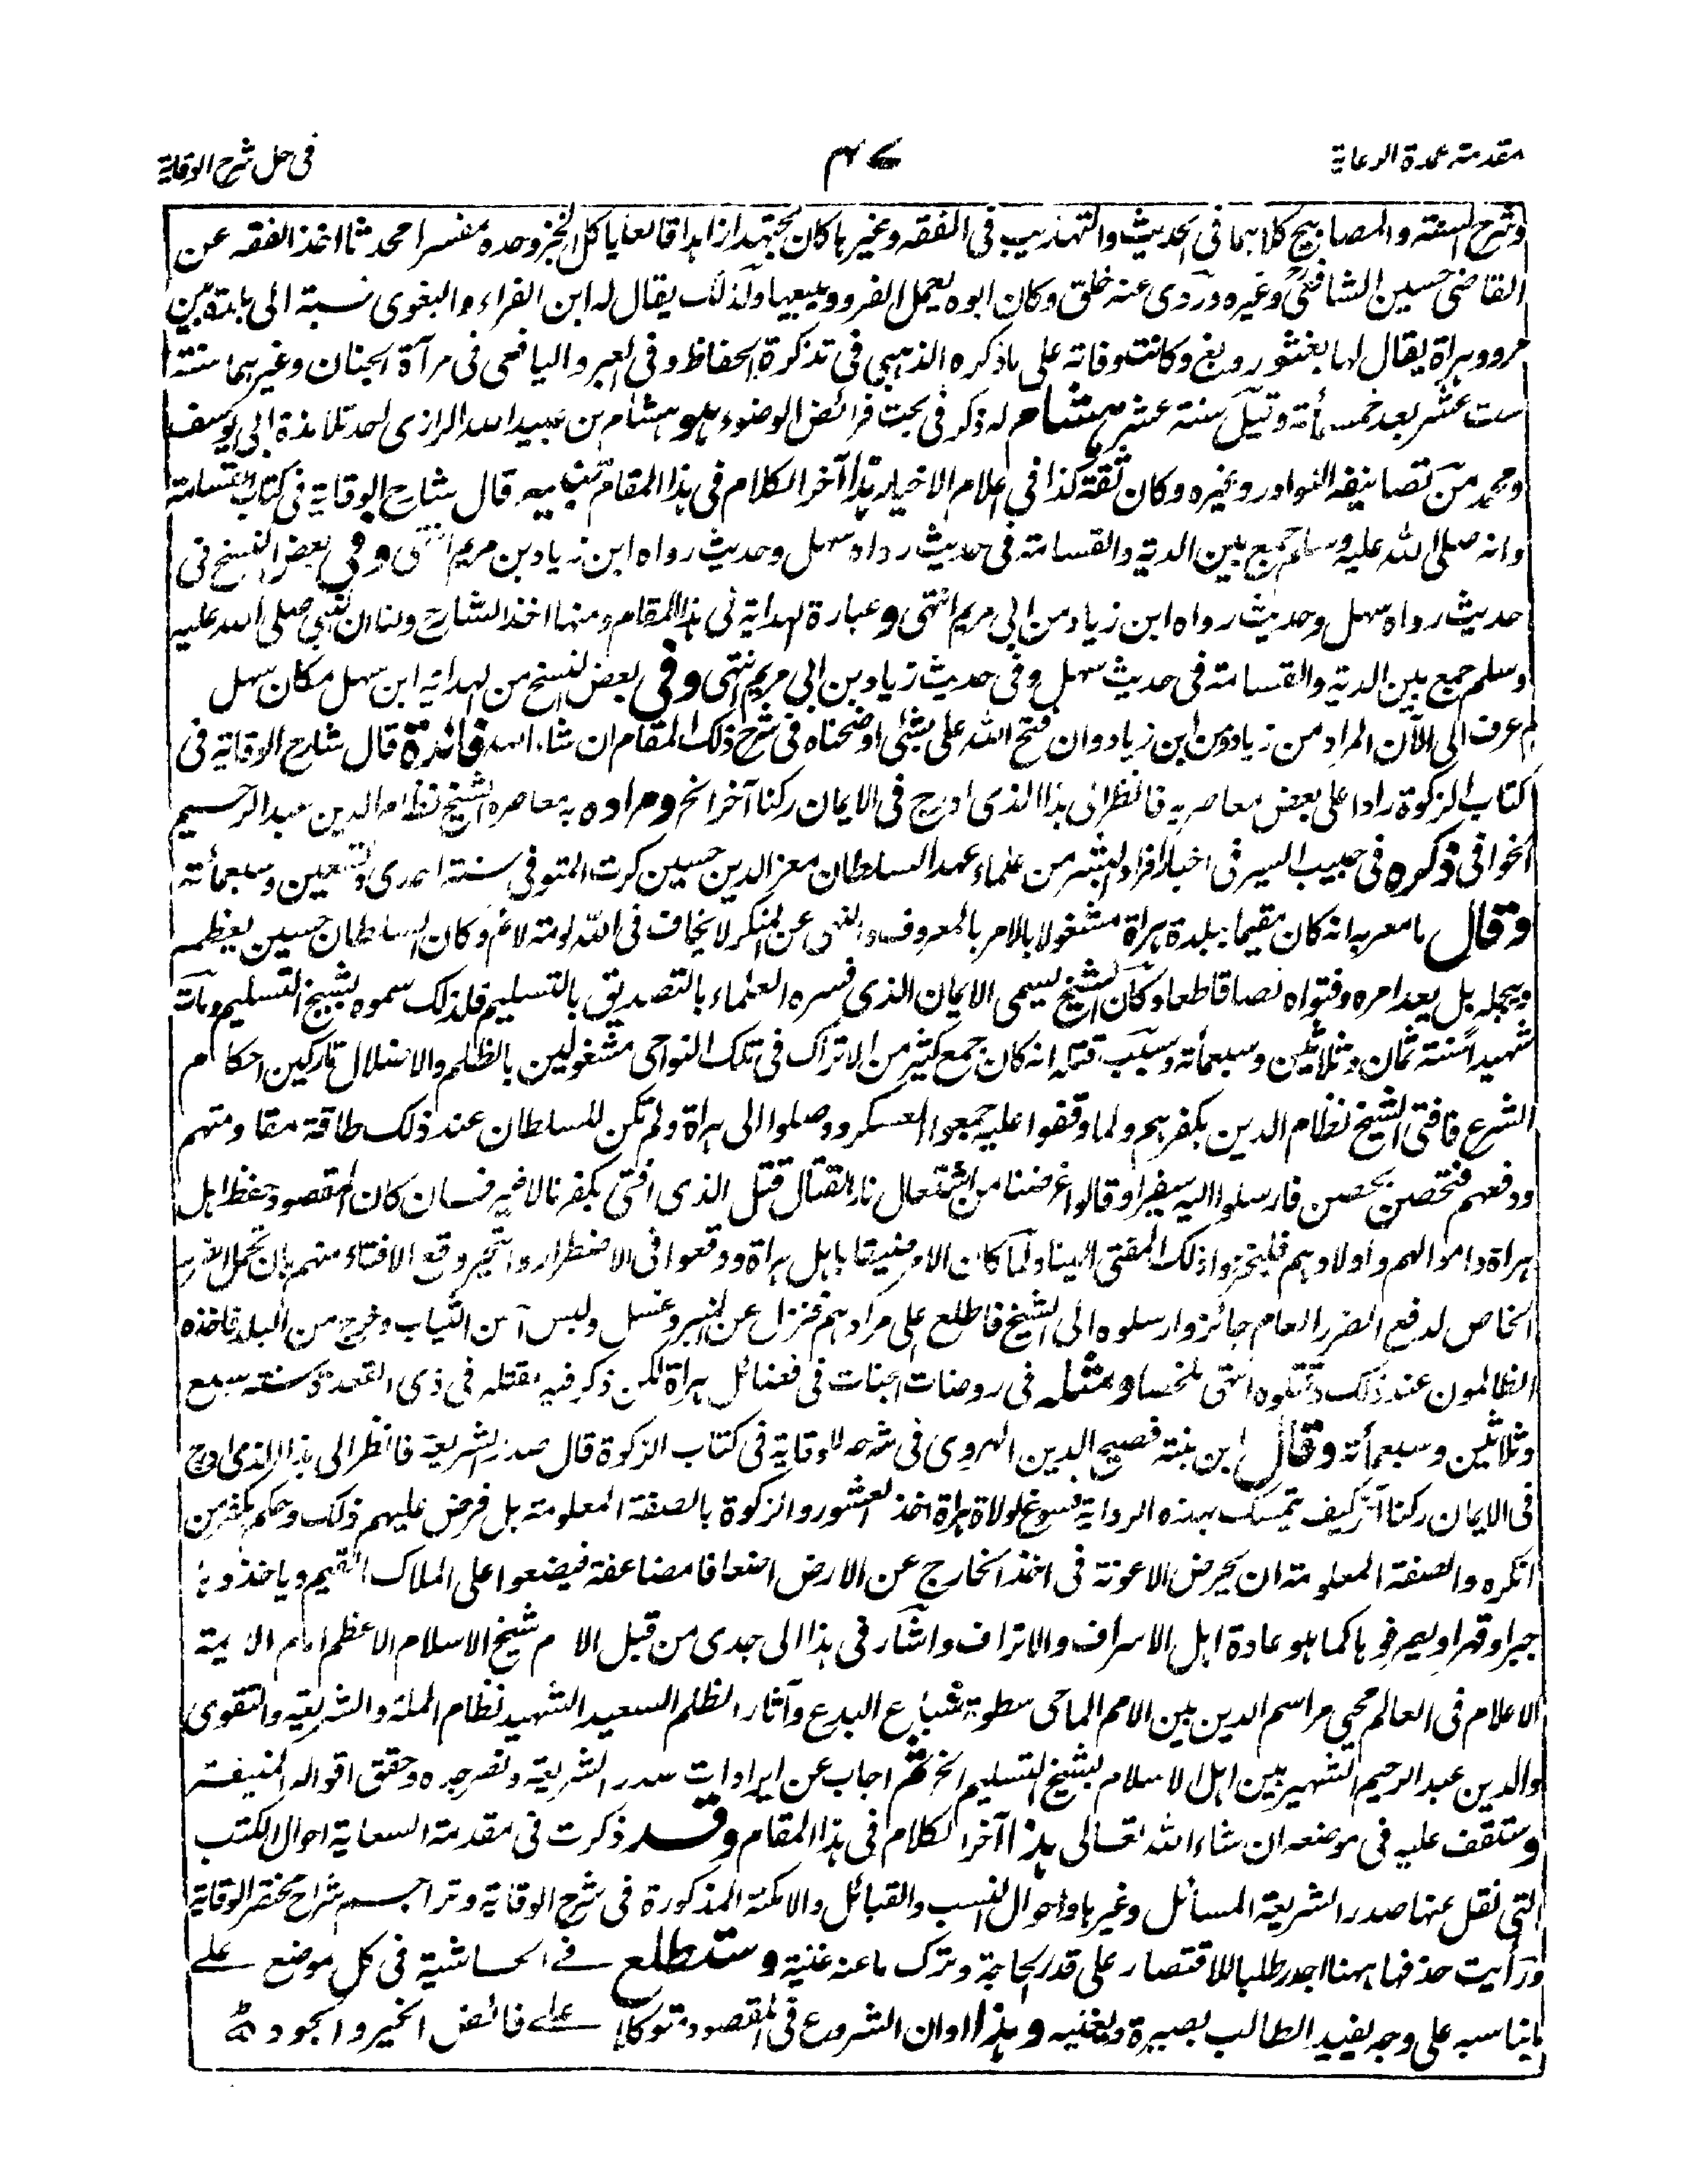 مقدمة عمدة الرعاية
٤٧
فى حل شرح الوقاية
وشرح السنة والمصابيح كلاهما فى الحديث والتهذيب فى الفقه وغيرها كان مجتهدا زاهدا قانعا ياكل الخبز وحده مفسرا محدثا اخذ الفقه عن
القاضى حسين الشافعى وغيره وروى عنه خلق وكان ابوه يعمل الفرو ويبيعها ولذلك يقال له ابن الفراء والبغوى نسبة الى بلدة بين
مرو وهراة يقال لها بغشور وبغ وكانت وفاته على ما ذكره الذهبى فى تذكرة الحفاظ وفى العبر واليافعى فى مرآة الجنان وغيرهما سنة
ست عشر بعد خمسمأته وقيل سنة عشر هشام له ذكر فى بحث فرائض الوضوء هو هشام بن عبيد الله الرازى احد تلامذة ابى يوسف
ومحمد من تصانيفه النوادر وغيره وكان ثقة كذا فى اعلام الاخيار هذا آخر الكلام فى هذا المقام تنبيه قال شارح الوقاية فى كتاب القسامة
وانه صلى الله عليه وسلم جمع بين الدية والقسامة فى حديث رواه سهل وحديث رواه ابن زياد بن مريم انتهى وفى بعض النسخ فى
حديث رواه سهل وحديث رواه ابن زياد من ابى مريم انتهى وعبارة الهداية فى هذا المقام ومنها اخذ الشارح ولنا ان النبى صلى الله عليه
وسلم جمع بين الدية والقسامة فى حديث سهل وفى حديث زياد بن ابى مريم انتهى وفى بعض النسخ من الهداية ابن سهل مكان سهل
لم عرف الى الآن المراد من زياد ومن ابن زياد وان فتح الله على بشئ اوضحناه فى شرح ذلك المقام ان شاء الله فائدة قال شارح الوقاية فى
كتاب الزكوة رادا على بعض معاصريه فانظر الى هذا الذى ادرج فى الايمان ركنا آخر الخ ومراده به معاصره الشيخ نظام الدين عبد الرحيم
الخوافى ذكره فى حبيب السير فى اخبار افراد البشر من علماء عهد السلطان معز الدين حسين كرت المتوفى سنة احدى وسبعين وسبعمأته
وقال ما معربه انه كان مقيما ببلدة هراة مشغولا بالامر بالمعروف والنهى عن المنكر لا يخاف فى الله لومة لائم وكان السلطان حسين يعظمه
ويبجله بل يعد امره وفتواه نصا قاطعا وكان الشيخ يسمى الايمان الذى فسره العلماء بالتصديق بالتسليم فلذلك سموه بشيخ التسليم ومات
شهيدا سنة ثمان وثلاثين وسبعمأته وسبب قتله انه كان جمع كثير من الاتراك فى تلك النواحى مشغولين بالظلم والاضلال تاركين احكام
الشرع فافتى الشيخ نظام الدين بكفرهم ولما وقفوا عليه جمعوا العسكر ووصلوا الى هراة ولم تكن للسلطان عند ذلك طاقة مقاومتهم
ودفعهم فتحصن بحصن فارسلوا اليه سفيرا وقالوا غرضنا من اشتعال نار القتال قتل الذى افتى بكفرنا لا غير فان كان المقصود حفظ اهل
هراة واموالهم واولادهم فليخرجوا ذلك المفتى الينا ولما كان الامر ضيقا باهل هراة ووقعوا فى الاضطرار والتحير وقع الافتاء منهم بان تحمل الضرر
الخاص لدفع الضرر العام جائز وارسلوه الى الشيخ فاطلع على مرادهم فنزل عن المنبر وغسل ولبس احسن الثياب وخرج من البلد فاخذه
الظالمون عند ذلك وقتلوه انتهى ملخصا ومثله فى روضات الجنات فى فضائل هراة لكن ذكر فيه مقتله فى ذى القعدة سنة سبع
وثلاثين وسبعمأته وقال ابن بنته فصيح الدين الهروى فى شرحه للوقاية فى كتاب الزكوة قال صدر الشريعة فانظر الى هذا الذى ادرج
فى الايمان ركنا آخر كيف يتمسك بهذه الرواية فسوغ لولاة هراة اخذ العشور والزكوة بالصفة المعلومة بل فرض عليهم ذلك وحكم بكفر من
انكره والصفة المعلومة ان يحرض الاعونة فى اخذ الخارج عن الارض اضعافا مضاعفة فيضعوا على الملاك القيم وياخذوها
جبرا وقهرا ويصرفوها كما هو عادة اهل الاسراف والاتراف واشار فى هذا الى جدى من قبل الام شيخ الاسلام الاعظم امام الائمة
الاعلام فى العالم محيى مراسم الدين بين الامم الماحى سطوة البدع وآثار الظلم السعيد الشهيد نظام الملة والشريعة والتقوى
والدين عبد الرحيم الشهير بين اهل الاسلام بشيخ التسليم الخ ثم اجاب عن ايرادات صدر الشريعة ونصر جده وحقق اقواله المنيفة
وستقف عليه فى موضعه ان شاء الله تعالى هذا آخر الكلام فى هذا المقام وقد ذكرت فى مقدمة السعاية احوال الكتب
التى نقل عنها صدر الشريعة المسائل وغيرها واحوال النسب والقبائل والامكنة المذكورة فى شرح الوقاية وتراجم شراح مختصر الوقاية
ورأيت حذفها ههنا اجدر طلبا للاقتصار على قدر الحاجة وترك ما عنه غنية وستطلع فى الحاشية فى كل موضع على
ما يناسبه على وجه يفيد الطالب بصيرة ويغنيه وهذا اوان الشروع فى المقصود متوكلا على فائض الخير والجود